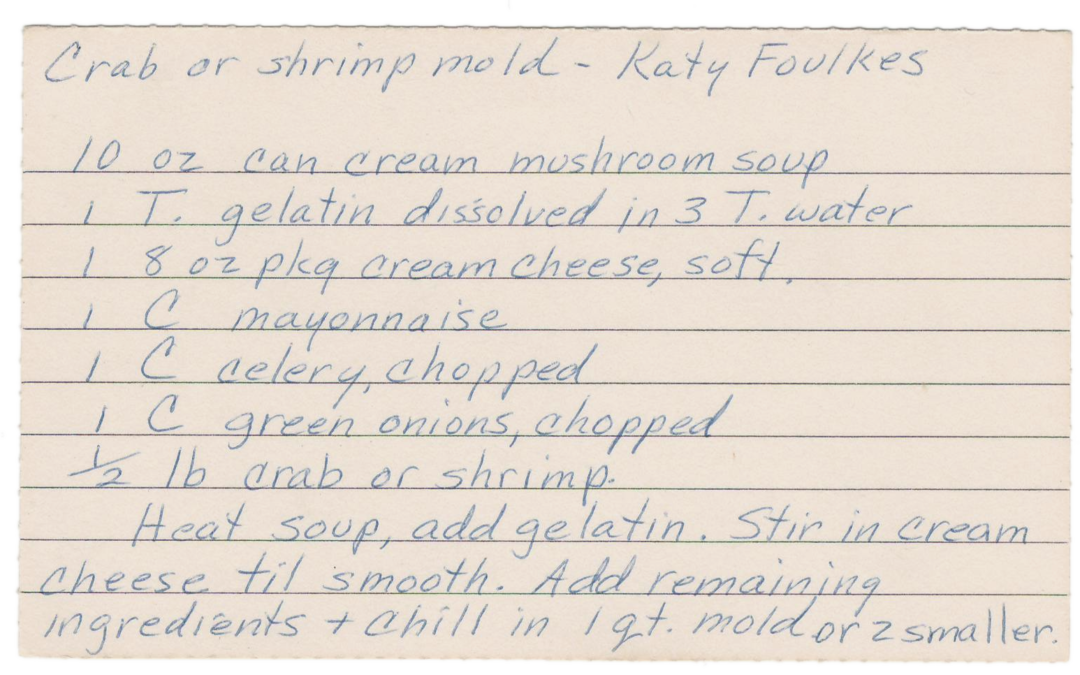 Crab or shrimp mold - Katy Foulkes
10 oz can cream mushroom soup
1 T. gelatin dissolved in 3 T. water
1 8 oz pkg cream cheese, soft.
1 C mayonnaise
1 C celery, chopped
1 C green onions, chopped
1/2 lb crab or shrimp.
Heat soup, add gelatin. Stir in cream
cheese til smooth. Add remaining
ingredients + chill in 1 qt. mold or 2 smaller.